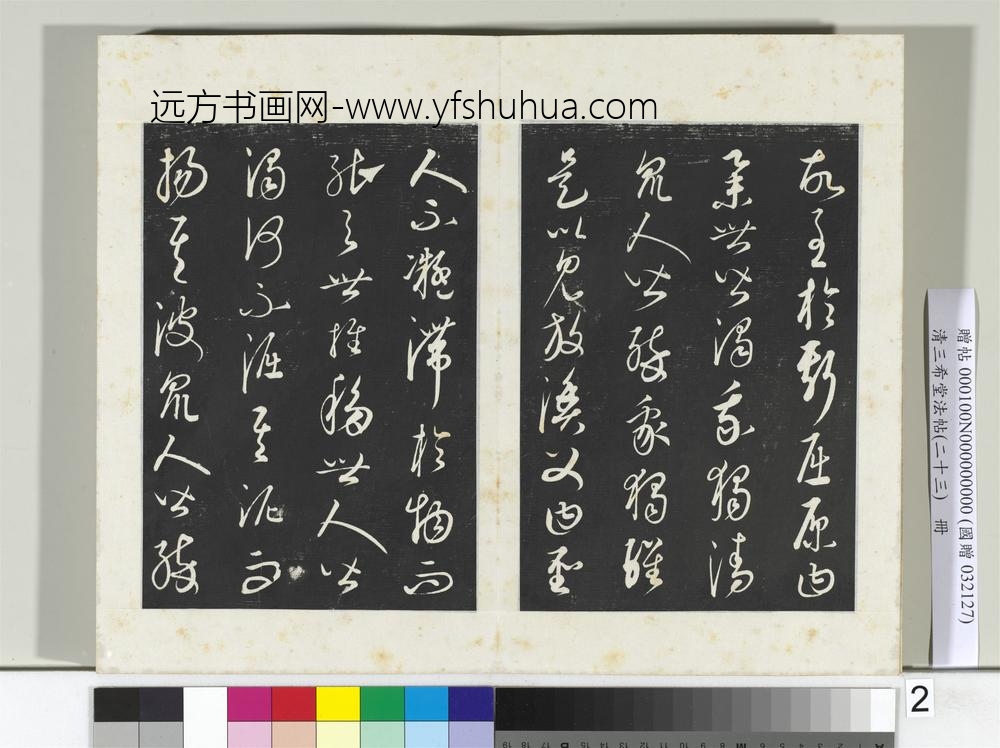 远方书画网-www.yfshuhua.com
故至於斯屈原曰
舉世皆濁我獨清
眾人皆醉我獨醒
是以見放漁父曰聖
人不凝滯於物而
能與世推移世人皆
濁何不淈其泥而
揚其波眾人皆醉
贈帖 000100N000000000 (國贈 032127)
清三希堂法帖(二十三) 冊
2